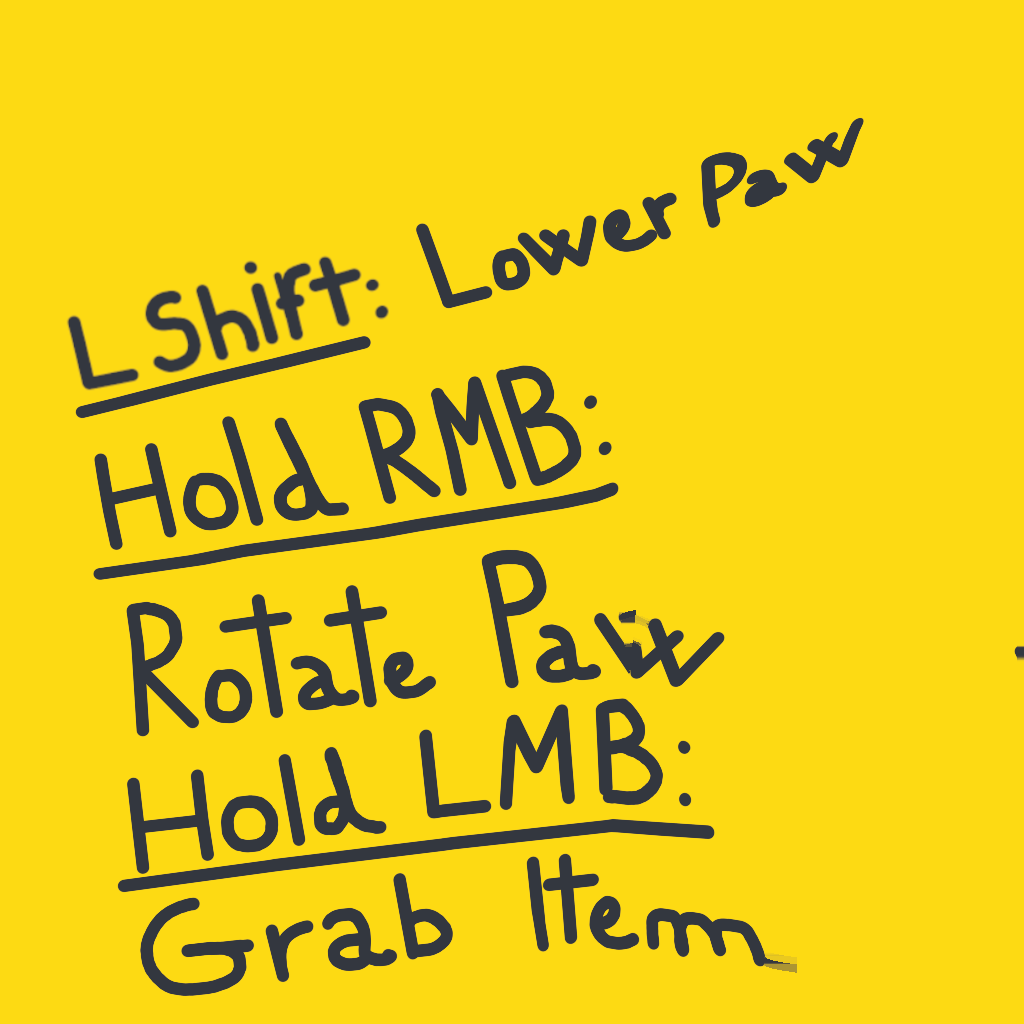 L Shift: Lower Paw
Hold RMB:
Rotate Paw
Hold LMB:
Grab Item